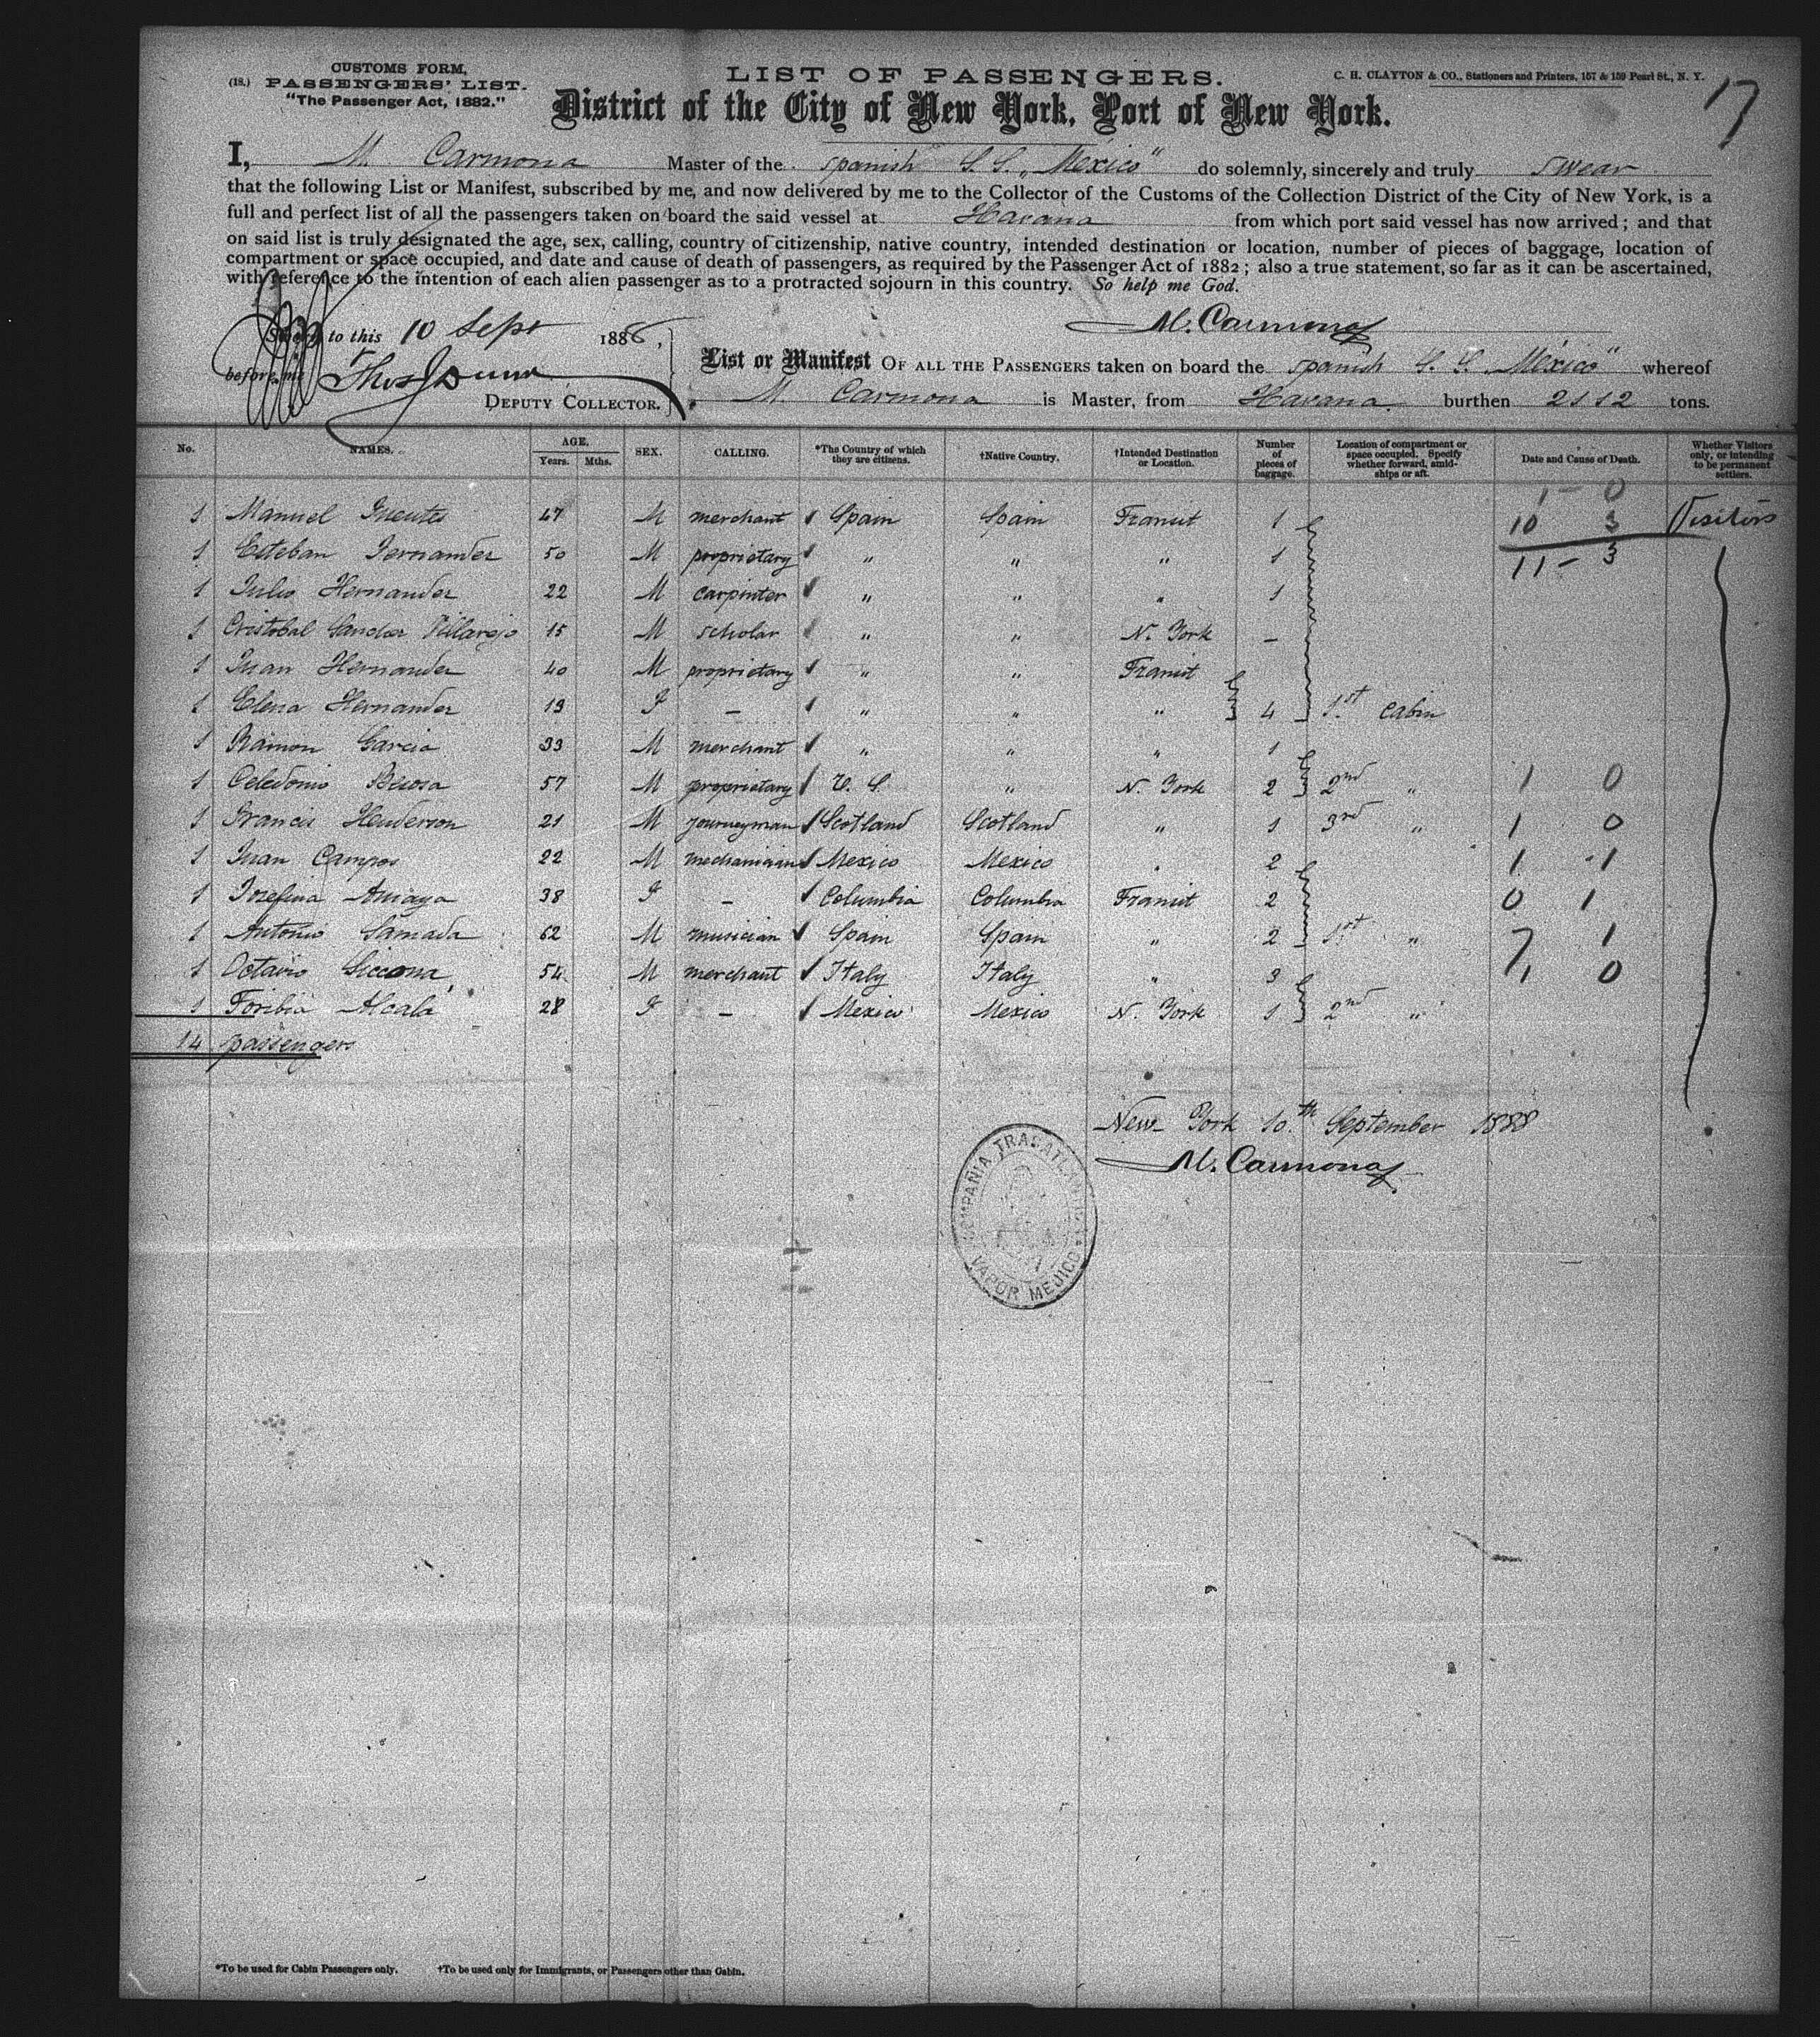 CUSTOMS FORM,
(18.) PASSENGERS' LIST.
"The Passenger Act, 1882."
LIST OF PASSENGERS.
C. H. CLAYTON & CO., Stationers and Printers, 157 & 159 Pearl St., N. Y.
17
District of the City of New York, Port of New York.
I, M. Carmona Master of the spanish S. S. „Mexico" do solemnly, sincerely and truly swear
that the following List or Manifest, subscribed by me, and now delivered by me to the Collector of the Customs of the Collection District of the City of New York, is a
full and perfect list of all the passengers taken on board the said vessel at Havana from which port said vessel has now arrived; and that
on said list is truly designated the age, sex, calling, country of citizenship, native country, intended destination or location, number of pieces of baggage, location of
compartment or space occupied, and date and cause of death of passengers, as required by the Passenger Act of 1882; also a true statement, so far as it can be ascertained,
with reference to the intention of each alien passenger as to a protracted sojourn in this country. So help me God.
M. Carmona
Sworn to this 10 Sept 1888,
before me Thos J Dunn
DEPUTY COLLECTOR.
List or Manifest OF ALL THE PASSENGERS taken on board the spanish S. S. „Mexico" whereof
M. Carmona is Master, from Havana. burthen 2112 tons.
No. NAMES. AGE. Years. Mths. SEX. CALLING. *The Country of which they are citizens. †Native Country. †Intended Destination or Location. Number of pieces of baggage. Location of compartment or space occupied. Specify whether forward, amidships or aft. Date and Cause of Death. Whether Visitors only, or intending to be permanent settlers.
1 - 0
1 Manuel Fuentes 47 M merchant Spain Spain Transit 1 10 3 Visitors
1 Esteban Fernandez 50 M proprietary " " " 1 11 - 3
1 Julio Hernandez 22 M carpinter " " " 1
1 Cristobal Sanchez 15 M scholar " " N. York -
1 Juan Hernandez 40 M proprietary " " Transit
1 Elena Hernandez 19 F - " " " 4 1st cabin
1 Ramon Garcia 33 M merchant " " " 1
1 Celedonio 57 M proprietary U. S. " N. York 2 2nd " 1 0
1 Francis Henderson 21 M journeyman Scotland Scotland " 1 3rd " 1 0
1 Juan Campos 22 M mechanician Mexico Mexico " 2 1 1
1 Josefina Amaya 38 F - Columbia Columbia Transit 2 0 1
1 Antonio Samada 62 M musician Spain Spain " 2 1st " 7 1
1 Octavio 54 M merchant Italy Italy " 3 1 0
1 Toribia Alcalá 28 F - Mexico Mexico N. York 1 2nd "
14 passengers
New York 10th September 1888
M. Carmona
COMPAÑIA TRASATLANTICA
VAPOR MEJICO
*To be used for Cabin Passengers only. †To be used only for Immigrants, or Passengers other than Cabin.